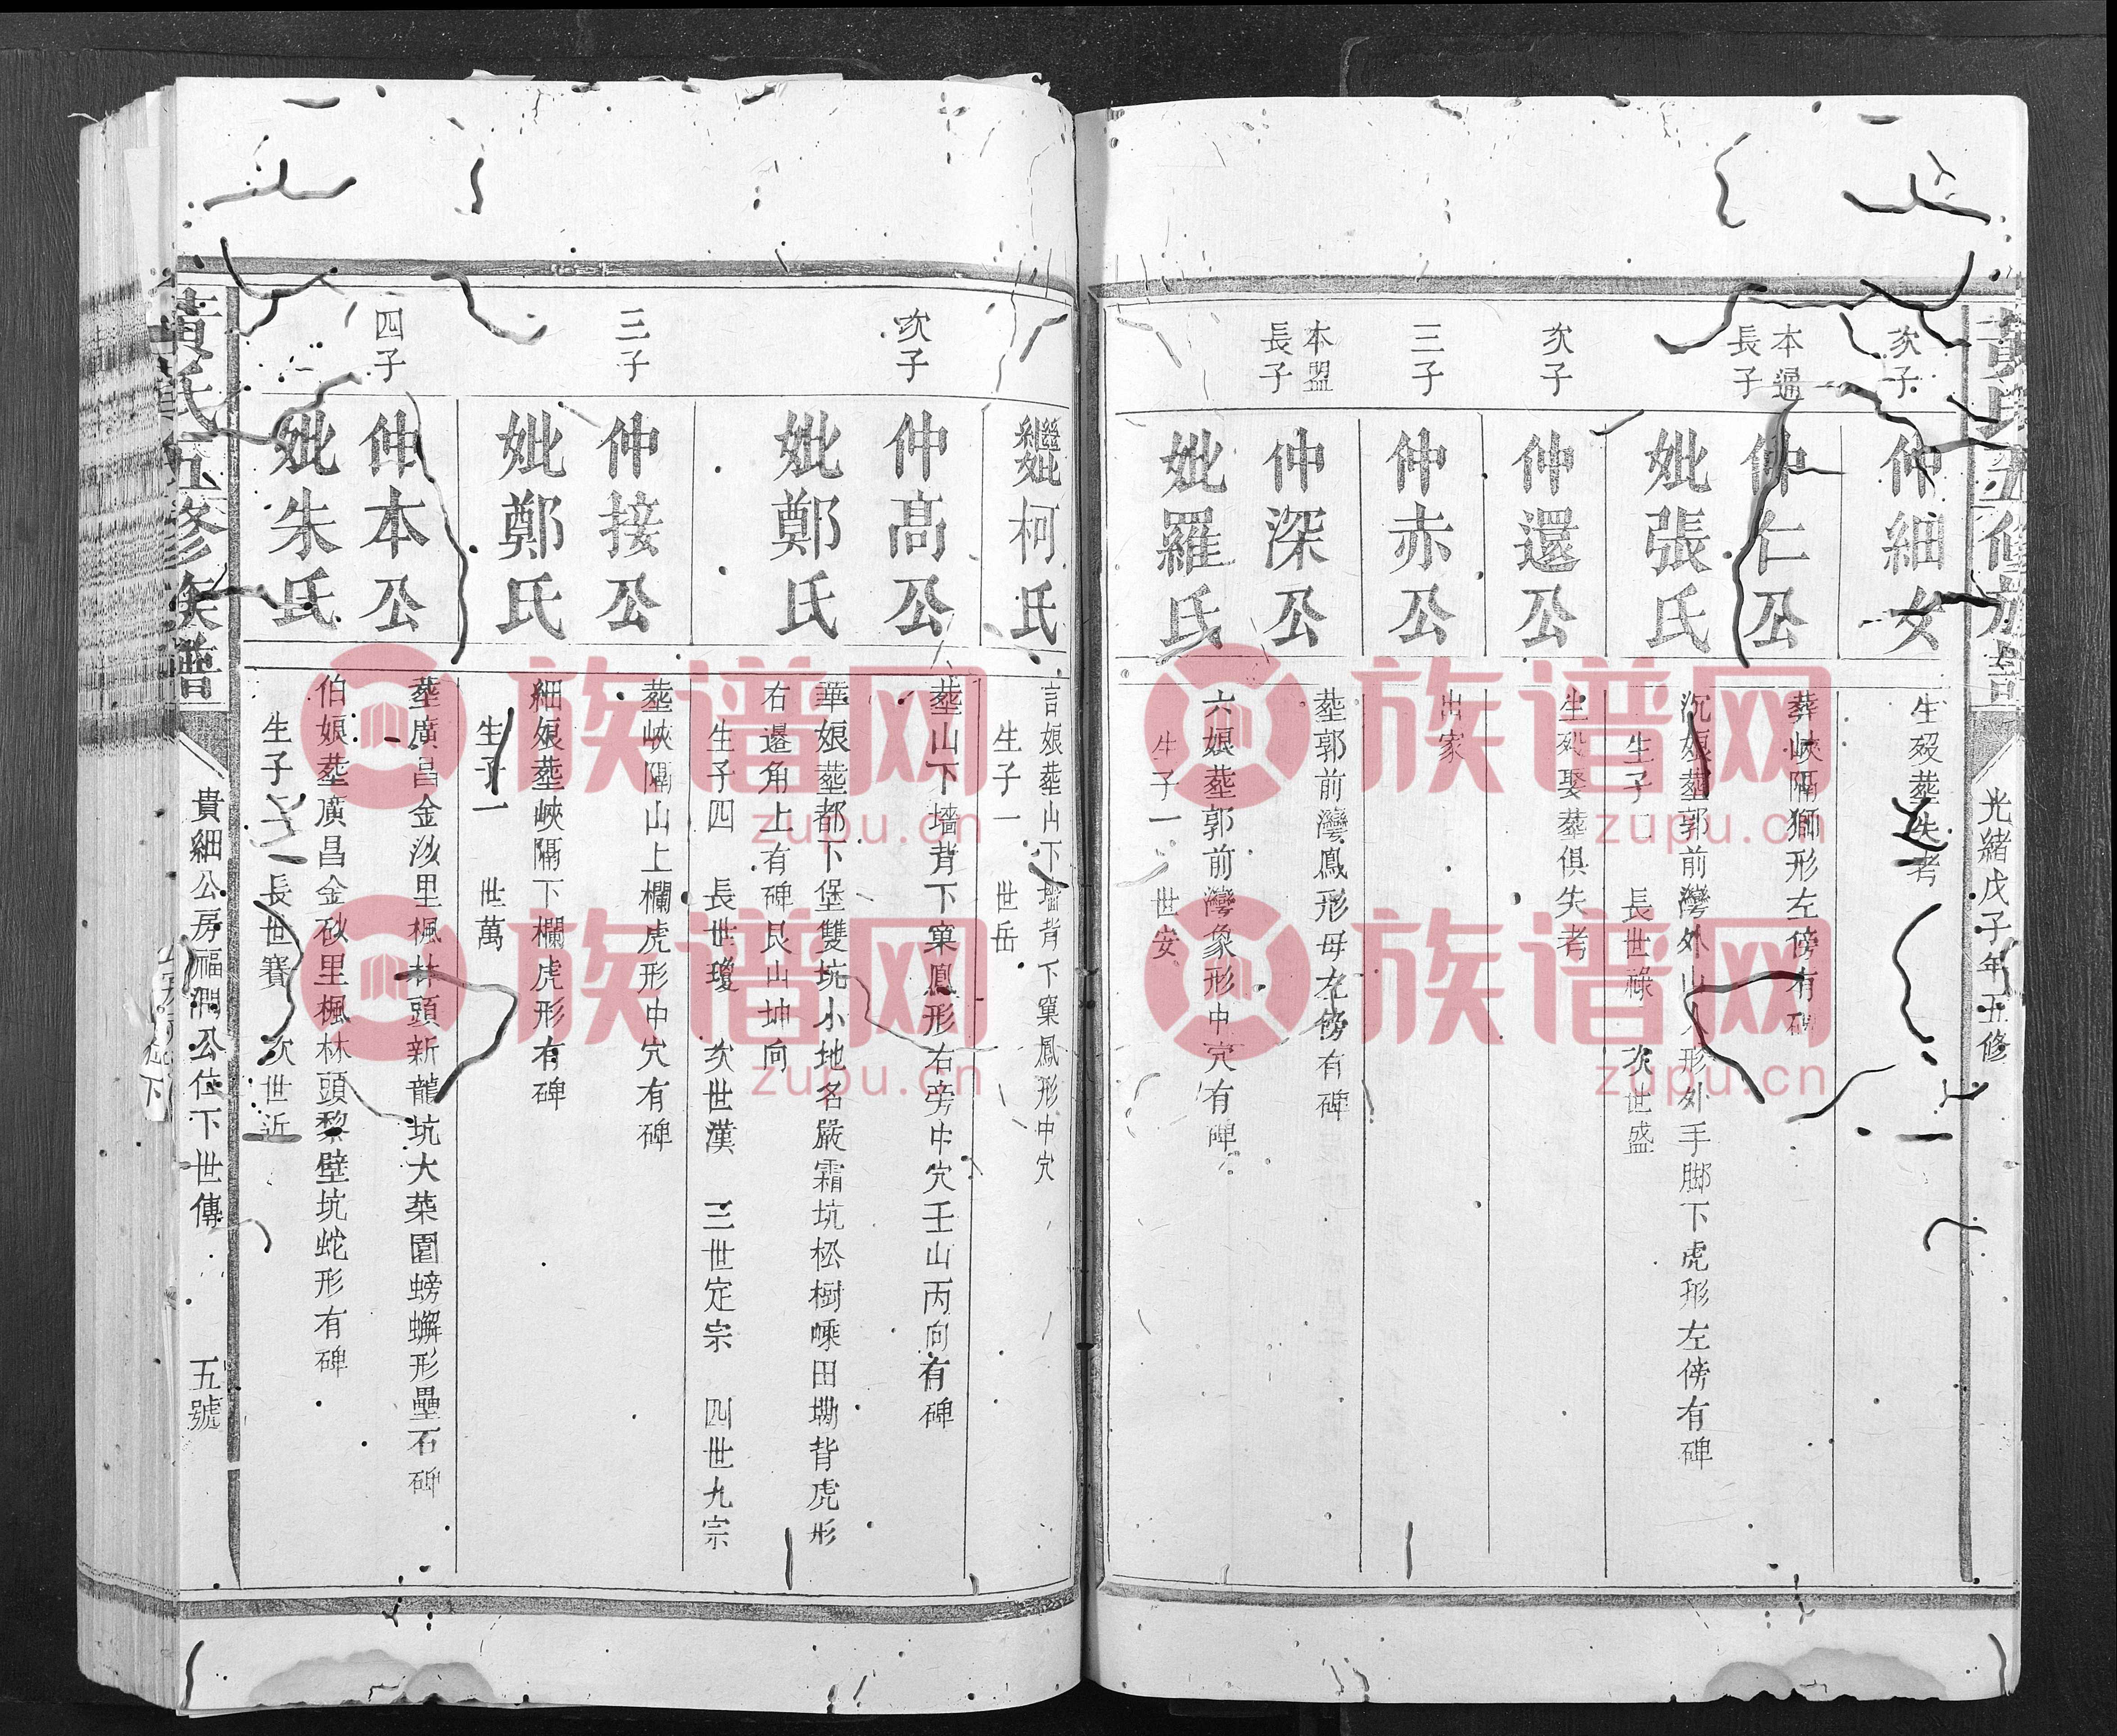 黃氏五修族譜
光緒戊子年五修
次子
仲細女
生殁塟失考
本通
長子
仲仁公
葬峽隔獅形左傍有碑
妣張氏
沉娘塟郭前灣外山人形外手脚下虎形左傍有碑
生子二 長世祿 次世盛
次子
仲還公
生殁娶葬俱失考
三子
仲赤公
出家
本盟
長子
仲深公
塟郭前灣鳳形母左傍有碑
妣羅氏
六娘葬郭前灣象形中穴有碑
生子一 世安
繼妣柯氏
言娘葬山下墻背下窠鳳形中穴
生子一 世岳
次子
仲高公
塟山下墻背下窠鳳形右旁中穴壬山丙向有碑
妣鄭氏
華娘塟都下堡雙坑小地名嚴霜坑松樹㟼田墈背虎形
右邊角上有碑艮山坤向
生子四 長世瓊 次世漢 三世定宗 四世九宗
三子
仲接公
葬峽隔山上欄虎形中穴有碑
妣鄭氏
細娘塟峽隔下欄虎形有碑
生子一 世萬
四子
仲本公
葬廣昌金沙里楓林頭新龍坑大菜園螃蠏形壘石碑
妣朱氏
伯娘塟廣昌金砂里楓林頭黎壁坑蛇形有碑
生子二 長世賽 次世近
黃氏五修族譜
貴細公房福潤公位下世傳
五號
族谱网
zupu.cn
族谱网
zupu.cn
族谱网
zupu.cn
族谱网
zupu.cn